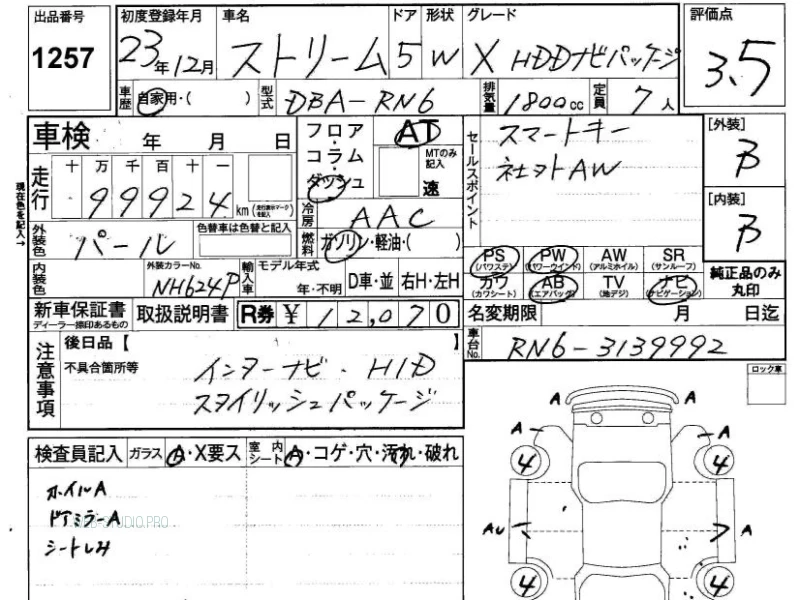 出品番号 初度登録年月 車名 ドア 形状 グレード 評価点
1257 23年12月 ストリーム 5 W X HDDナビパッケージ 3.5
車歴 自家用・( ) 型式 DBA-RN6 排気量 1800cc 定員 7人
車検 年 月 日 フロア・コラム・ダッシュ AT MTのみ記入 速 セールスポイント スマートキー [外装] B
社外AW
走行 十 万 千 百 十 一
99924 km (走行表示マークを記入)
現在色を記入→
冷房 AAC [内装] B
外装色 パール 色替車は色替と記入 燃料 ガソリン・軽油・( )
PS (パワステ) PW (パワーウインド) AW (アルミホイル) SR (サンルーフ)
カワ (カワシート) AB (エアバッグ) TV (地デジ) ナビ (ナビゲーション) 純正品のみ丸印
内装色 外装カラーNo. NH624P 輸入車 モデル年式 年・不明 D車・並 右H・左H
新車保証書 ディーラー捺印あるもの 取扱説明書 R券 ¥ 12,070 名変期限 月 日迄
注意事項 後日品【 】 車台No. RN6-3139992
不具合箇所等 インターナビ・HID
スタイリッシュパッケージ
ロック車
検査員記入 ガラス A・X要ス 室内シート A・コゲ・穴・汚れ・破れ
ホイルA
ドアミラーA
WEB-STUDIO.PRO
シートしみ
A A
A A
4 4
AU A
4 4